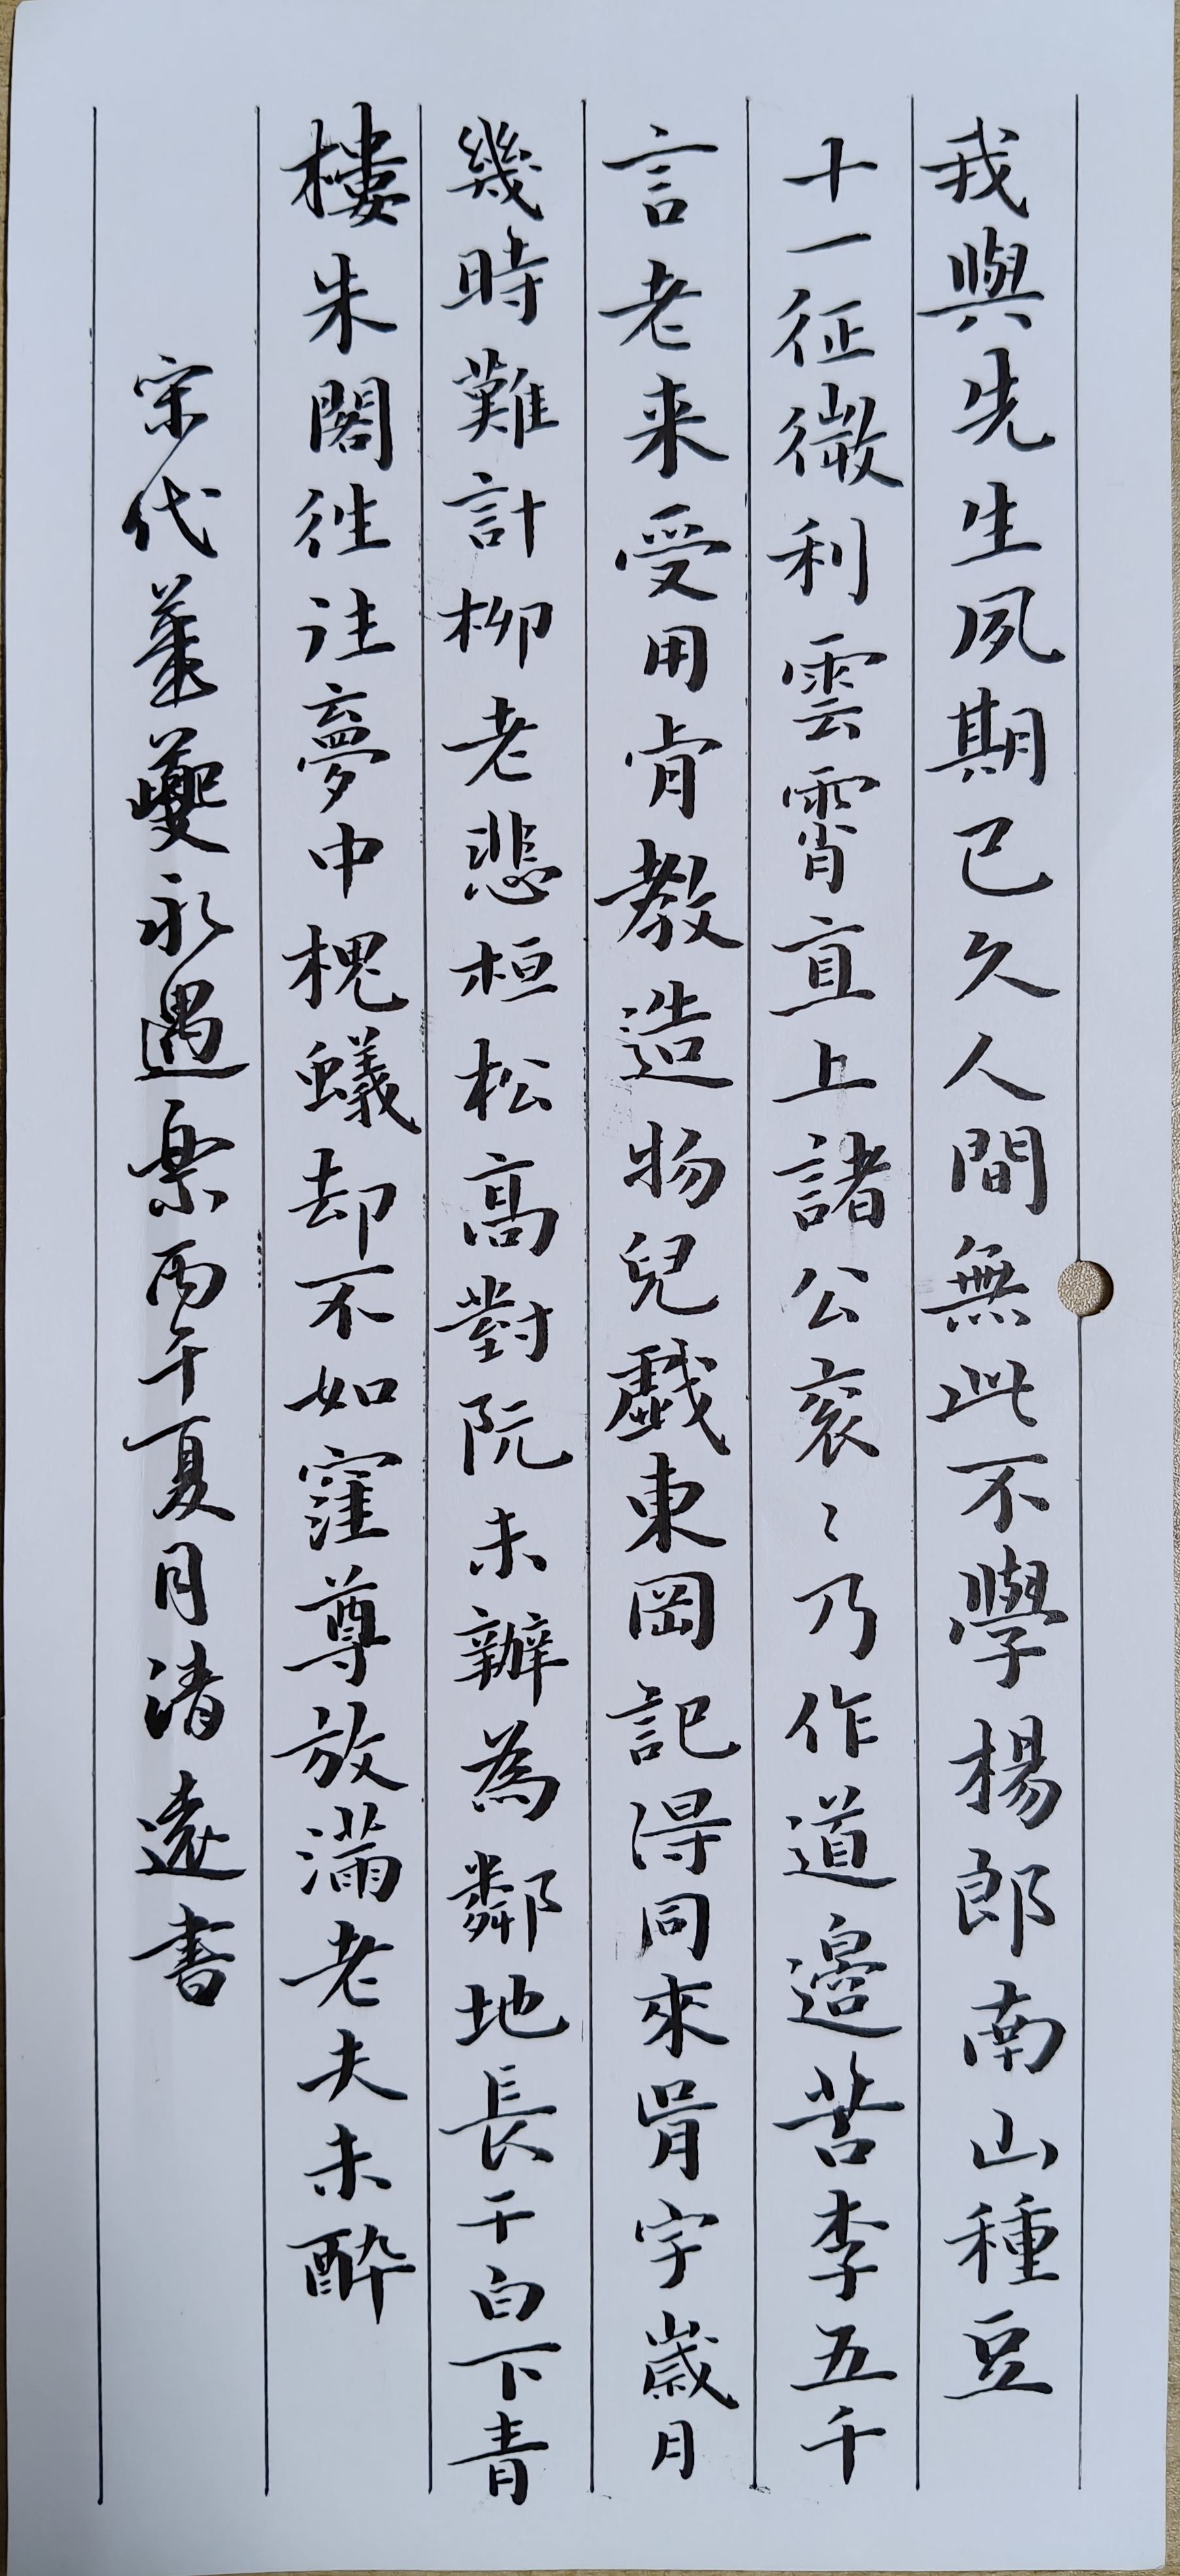 我與先生夙期已久人間無此不學楊郎南山種豆
十一征微利雲霄直上諸公衮〻乃作道邊苦李五千
言老来受用肯教造物兒戲東岡記得同來胥宇歲月
幾時難計柳老悲桓松高對阮未辦為鄰地長干白下青
樓朱閣往往夢中槐蟻却不如窪尊放滿老夫未醉
宋代姜夔永遇樂丙午夏月清遠書